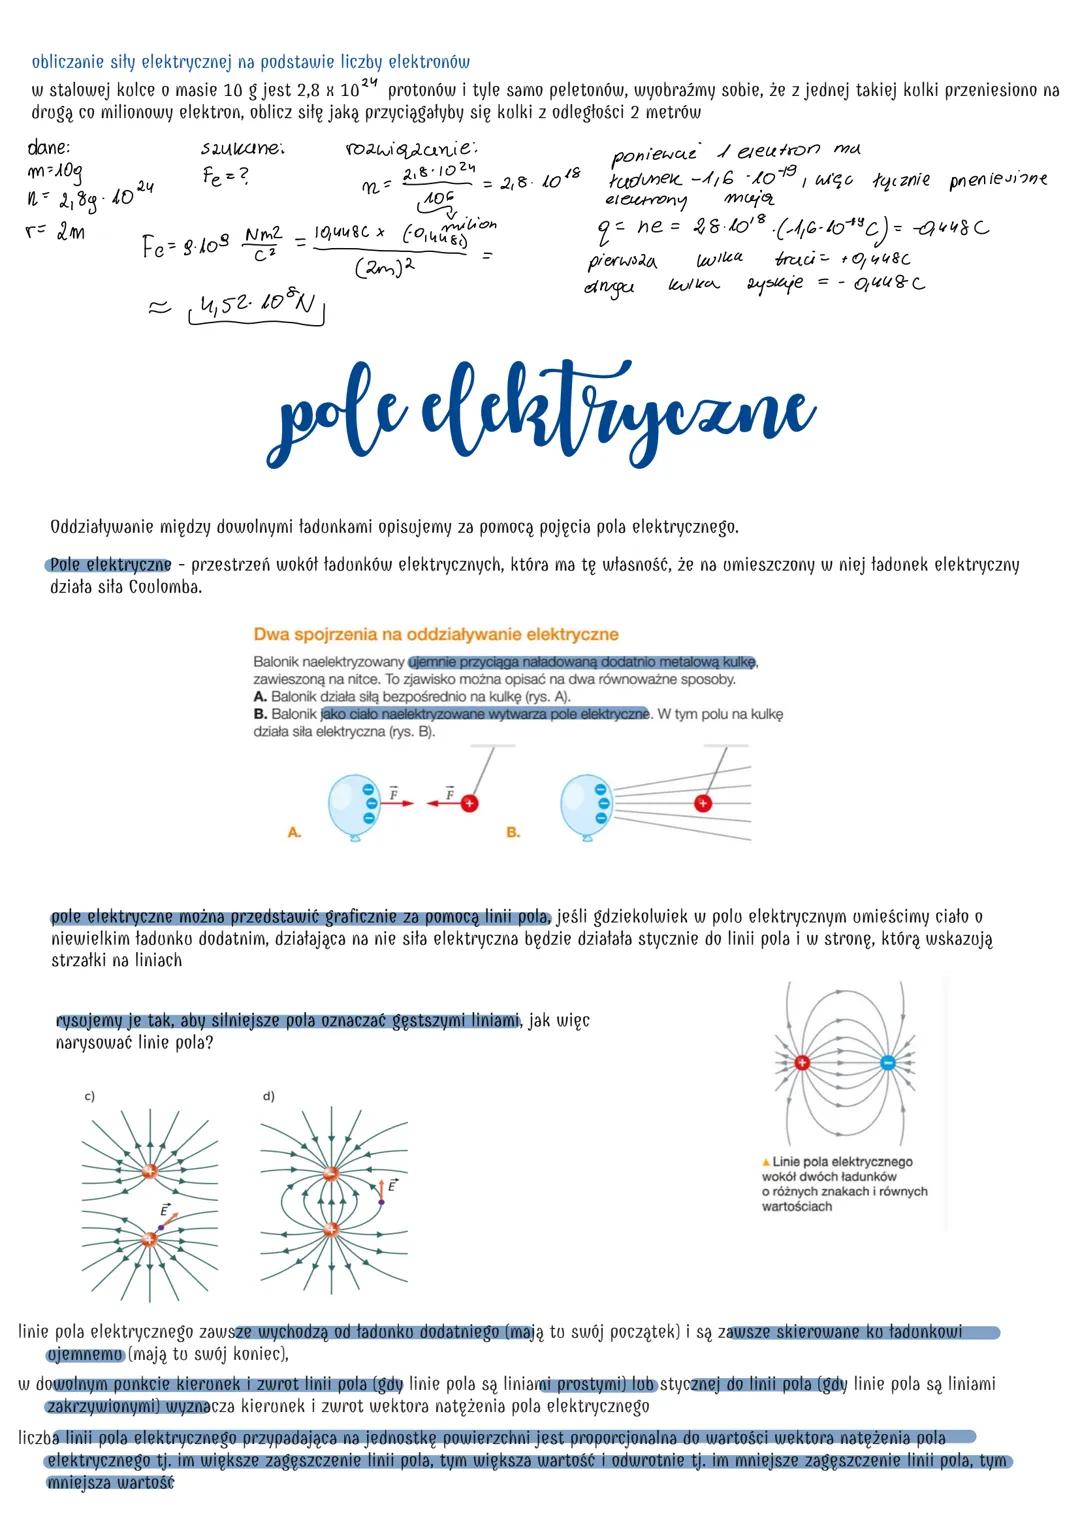 obliczanie siły elektrycznej na podstawie liczby elektronów
w stalowej kulce o masie 10 g jest 2,8 x 10²⁴ protonów i tyle samo peletonów, wyobraźmy sobie, że z jednej takiej kulki przeniesiono na
drugą co milionowy elektron, oblicz siłę jaką przyciągałyby się kulki z odległości 2 metrów
dane:
m=10g
n = 2,8g · 10²⁴
r = 2m
szukane:
Fe = ?
rozwiązanie:
n = 2,8·10²⁴ / 10⁶ = 2,8 · 10¹⁸
milion
Fe = 9·10⁹ Nm2/C² = |0,448C x (-0,448C)| / (2m)² =
≈ 4,52 · 10⁸ N
ponieważ 1 elektron ma
ładunek -1,6 · 10⁻¹⁹, więc łącznie przeniesione
elektrony mają
q = ne = 28·10¹⁸ · (-1,6·10⁻¹⁹C) = -0,448C
pierwsza kulka traci = +0,448C
druga kulka zyskuje = - 0,448C
pole elektryczne
Oddziaływanie między dowolnymi ładunkami opisujemy za pomocą pojęcia pola elektrycznego.
Pole elektryczne - przestrzeń wokół ładunków elektrycznych, która ma tę własność, że na umieszczony w niej ładunek elektryczny
działa siła Coulomba.
Dwa spojrzenia na oddziaływanie elektryczne
Balonik naelektryzowany ujemnie przyciąga naładowaną dodatnio metalową kulkę,
zawieszoną na nitce. To zjawisko można opisać na dwa równoważne sposoby.
A. Balonik działa siłą bezpośrednio na kulkę (rys. A).
B. Balonik jako ciało naelektryzowane wytwarza pole elektryczne. W tym polu na kulkę
działa siła elektryczna (rys. B).
F F
A. B.
pole elektryczne można przedstawić graficznie za pomocą linii pola, jeśli gdziekolwiek w polu elektrycznym umieścimy ciało o
niewielkim ładunku dodatnim, działająca na nie siła elektryczna będzie działała stycznie do linii pola i w stronę, którą wskazują
strzałki na liniach
rysujemy je tak, aby silniejsze pola oznaczać gęstszymi liniami, jak więc
narysować linie pola?
c) d)
E E
▲ Linie pola elektrycznego
wokół dwóch ładunków
o różnych znakach i równych
wartościach
linie pola elektrycznego zawsze wychodzą od ładunku dodatniego (mają tu swój początek) i są zawsze skierowane ku ładunkowi
ujemnemu (mają tu swój koniec),
w dowolnym punkcie kierunek i zwrot linii pola (gdy linie pola są liniami prostymi) lub stycznej do linii pola (gdy linie pola są liniami
zakrzywionymi) wyznacza kierunek i zwrot wektora natężenia pola elektrycznego
liczba linii pola elektrycznego przypadająca na jednostkę powierzchni jest proporcjonalna do wartości wektora natężenia pola
elektrycznego tj. im większe zagęszczenie linii pola, tym większa wartość i odwrotnie tj. im mniejsze zagęszczenie linii pola, tym
mniejsza wartość